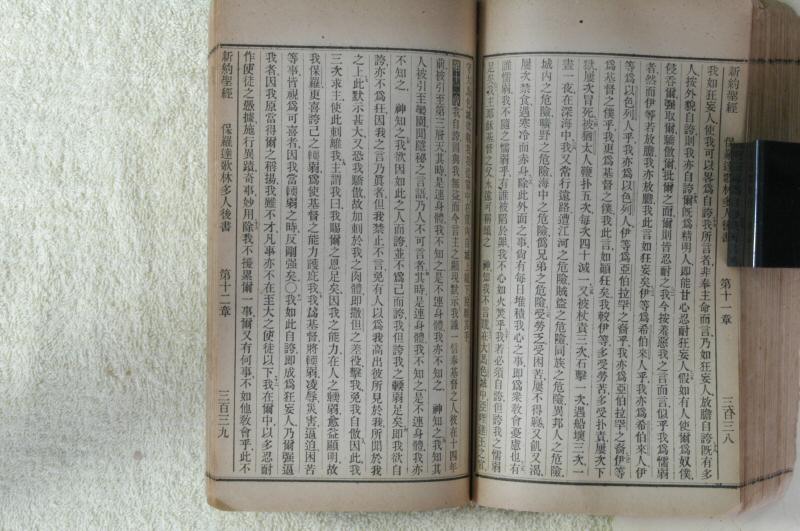 新約聖經 保羅達歌林多人後書 第十一章 三百三八
我如狂妄人使我可以畧爲自誇我所言者非奉主命而言乃如狂妄人放膽自誇旣有多
人按外貌自誇則我亦自誇爾旣爲精明人卽能甘心忍耐狂妄人假如有人使爾爲奴僕
侵吞爾強取爾驕傲爾批爾之面爾則皆忍耐之我今按羞惡之言而言似乎我爲懦弱
者然而伊等若放膽我亦放膽我此言如狂妄矣伊等爲希伯來人乎我亦爲希伯來人伊
等爲以色列人乎我亦爲以色列人伊等爲亞伯拉罕之裔乎我亦爲亞伯拉罕之裔伊等
爲基督之僕乎我更爲基督之僕我此言如顚狂矣我較伊等多受勞苦多受扑責屢次下
獄屢次冒死被猶太人鞭扑五次每次四十減一又被杖責三次石擊一次遇船壞三次一
晝一夜在深海中我又常行遠路遭江河之危險賊盜之危險同族之危險異邦人之危險
城內之危險曠野之危險海中之危險僞兄弟之危險受勞乏受困苦屢不得寢又飢又渴
屢次禁食遇寒冷而赤身除此外面之事尙有每日堆積我心之事卽爲衆敎會憂慮也有
誰懦弱我不隨之懦弱乎有誰被陷於罪我不心如火焚乎我若必須自誇但誇我之懦弱
足矣我主耶穌基督之父永遠可稱頌之 神知我不言謊在大馬色城中亞哩達王之官
第十二章 我自誇固與我無益而今言主之顯現默示我識一信奉基督之人彼在十四年
前被引至第三層天其時是連身體我不知之是不連身體我亦不知之 神知之我知其
人被引至樂園聞隱秘之言語乃人不可言者其時是連身體我不知之是不連身體我亦
不知之 神知之我欲因如此之人而誇並不爲己而誇我但誇我之輭弱足矣卽我欲自
誇亦不爲狂因我之言乃眞者但我禁止不言免有人以爲我高出彼所見於我所聞於我
之上此默示甚大又恐我驕傲故加刺於我之肉體卽撒但之差役擊我免我自傲因此我
三次求主使此刺離我主謂我曰我賜爾之恩足矣因我之能力在人之輭弱愈益顯明故
我保羅更喜誇己之輭弱爲使基督之能力護庇我我爲基督將輭弱凌辱災害逼迫困苦
等事皆視爲可喜者因我當輭弱之時反剛強矣〇我如此自誇卽成爲狂妄人乃爾強逼
我者因我原當得爾之稱揚我雖不才凡事亦不在至大之使徒以下我在爾中以多忍耐
作使徒之憑據施行異蹟奇事妙用除我不擾累爾一事爾又有何事不如他敎會乎此不
新約聖經 保羅達歌林多人後書 第十二章 三百三九